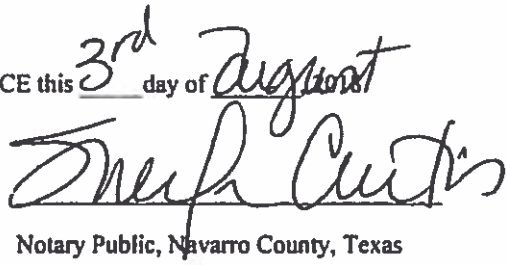 CE this 3rd day of August 2018
Curtis
Notary Public, Navarro County, Texas